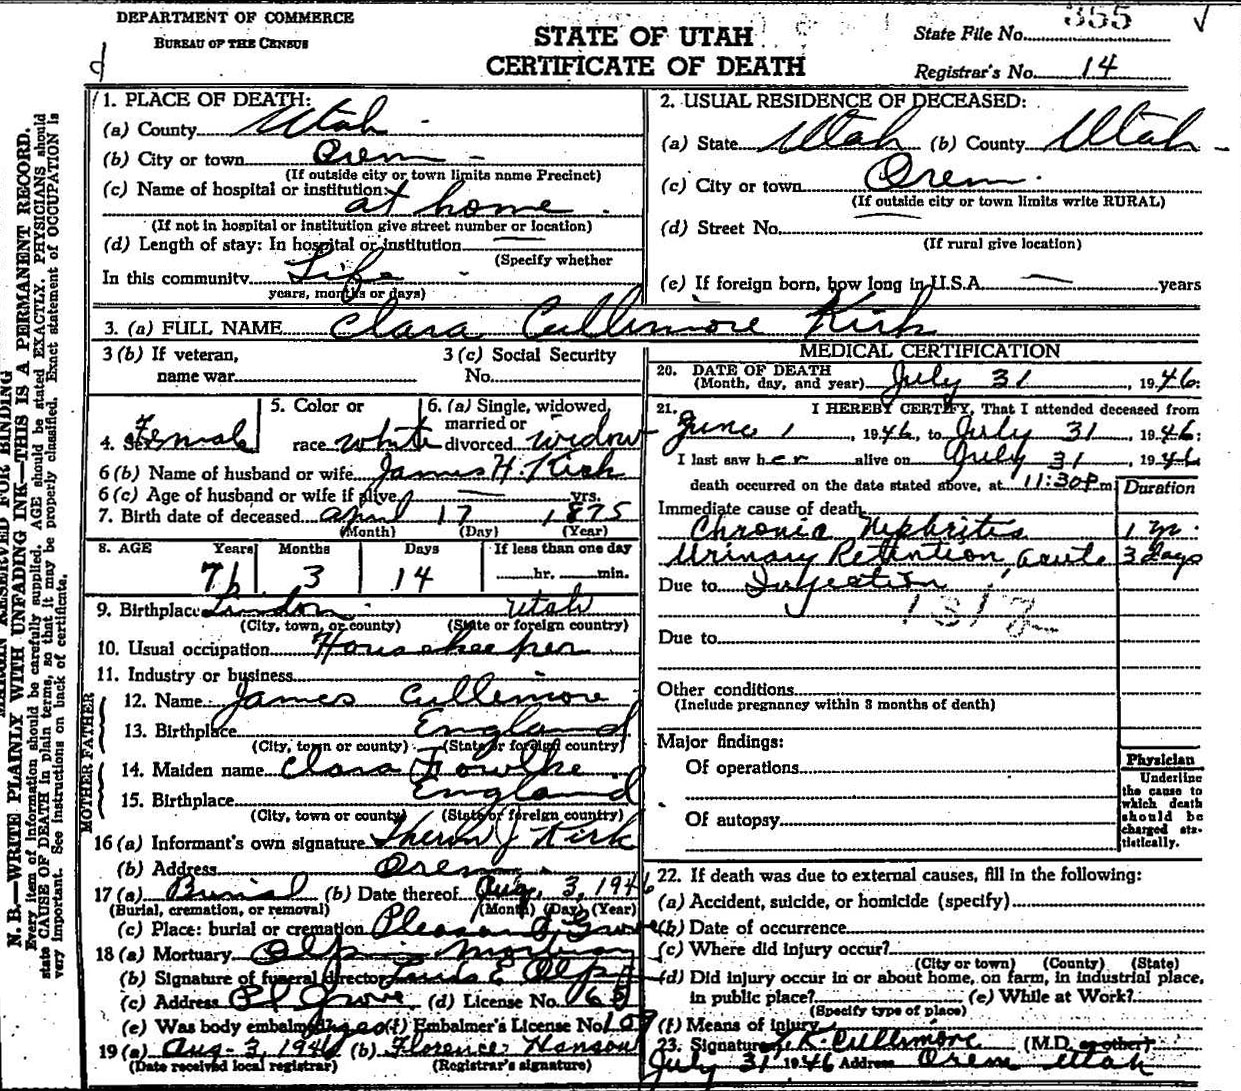 DEPARTMENT OF COMMERCE
BUREAU OF THE CENSUS
STATE OF UTAH
CERTIFICATE OF DEATH
State File No. 355
Registrar's No. 14
MARGIN RESERVED FOR BINDING
N. B.—WRITE PLAINLY WITH UNFADING INK—THIS IS A PERMANENT RECORD.
Every item of information should be carefully supplied. AGE should be stated EXACTLY. PHYSICIANS should
state CAUSE OF DEATH in plain terms, so that it may be properly classified. Exact statement of OCCUPATION is
very important. See instructions on back of certificate.
1. PLACE OF DEATH:
(a) County Utah
(b) City or town Orem
(If outside city or town limits name Precinct)
(c) Name of hospital or institution:
at home
(If not in hospital or institution give street number or location)
(d) Length of stay: In hospital or institution
(Specify whether
In this community Life
years, months or days)
2. USUAL RESIDENCE OF DECEASED:
(a) State Utah (b) County Utah
(c) City or town Orem
(If outside city or town limits write RURAL)
(d) Street No.
(If rural give location)
(e) If foreign born, how long in U.S.A. years
3. (a) FULL NAME Clara Cullimore Kirk
3 (b) If veteran,
name war
3 (c) Social Security
No.
4. Sex Female
5. Color or
race white
6. (a) Single, widowed,
married or
divorced widow
6 (b) Name of husband or wife James H. Kirk
6 (c) Age of husband or wife if alive yrs.
7. Birth date of deceased April 17 1875
(Month) (Day) (Year)
8. AGE Years Months Days If less than one day
71 3 14 hr. min.
9. Birthplace Lindon Utah
(City, town, or county) (State or foreign country)
10. Usual occupation Housekeeper
11. Industry or business
FATHER
12. Name James Cullimore
13. Birthplace England
(City, town or county) (State or foreign country)
MOTHER
14. Maiden name Clara Fowlke
15. Birthplace England
(City, town or county) (State or foreign country)
16 (a) Informant's own signature Theron J Kirk
(b) Address Orem
17 (a) Burial (b) Date thereof Aug. 3, 1946
(Burial, cremation, or removal) (Month) (Day) (Year)
(c) Place: burial or cremation Pleasant Grove
18 (a) Mortuary Olpin Mortuary
(b) Signature of funeral director E Olpin
(c) Address Pl Grove (d) License No.
(e) Was body embalmed? yes (f) Embalmer's License No.
19 (a) Aug-3, 1946 (b) Florence Hanson
(Date received local registrar) (Registrar's signature)
MEDICAL CERTIFICATION
20. DATE OF DEATH
(Month, day, and year) July 31, 1946.
21. I HEREBY CERTIFY, That I attended deceased from
June 1, 1946, to July 31, 1946;
I last saw her alive on July 31, 1946
death occurred on the date stated above, at 11:30 P m
Duration
Immediate cause of death
Chronic Nephritis 1 yr.
Urinary Retention, acute 3 days
Due to
131
Due to
Other conditions
(Include pregnancy within 3 months of death)
Major findings:
Of operations
Of autopsy
Physician
Underline
the cause to
which death
should be
charged sta-
tistically.
22. If death was due to external causes, fill in the following:
(a) Accident, suicide, or homicide (specify)
(b) Date of occurrence
(c) Where did injury occur?
(City or town) (County) (State)
(d) Did injury occur in or about home, on farm, in industrial place,
in public place? (e) While at Work?
(Specify type of place)
(f) Means of injury
23. Signature Cullimore (M.D. or other)
July 31 1946 Address Orem Utah